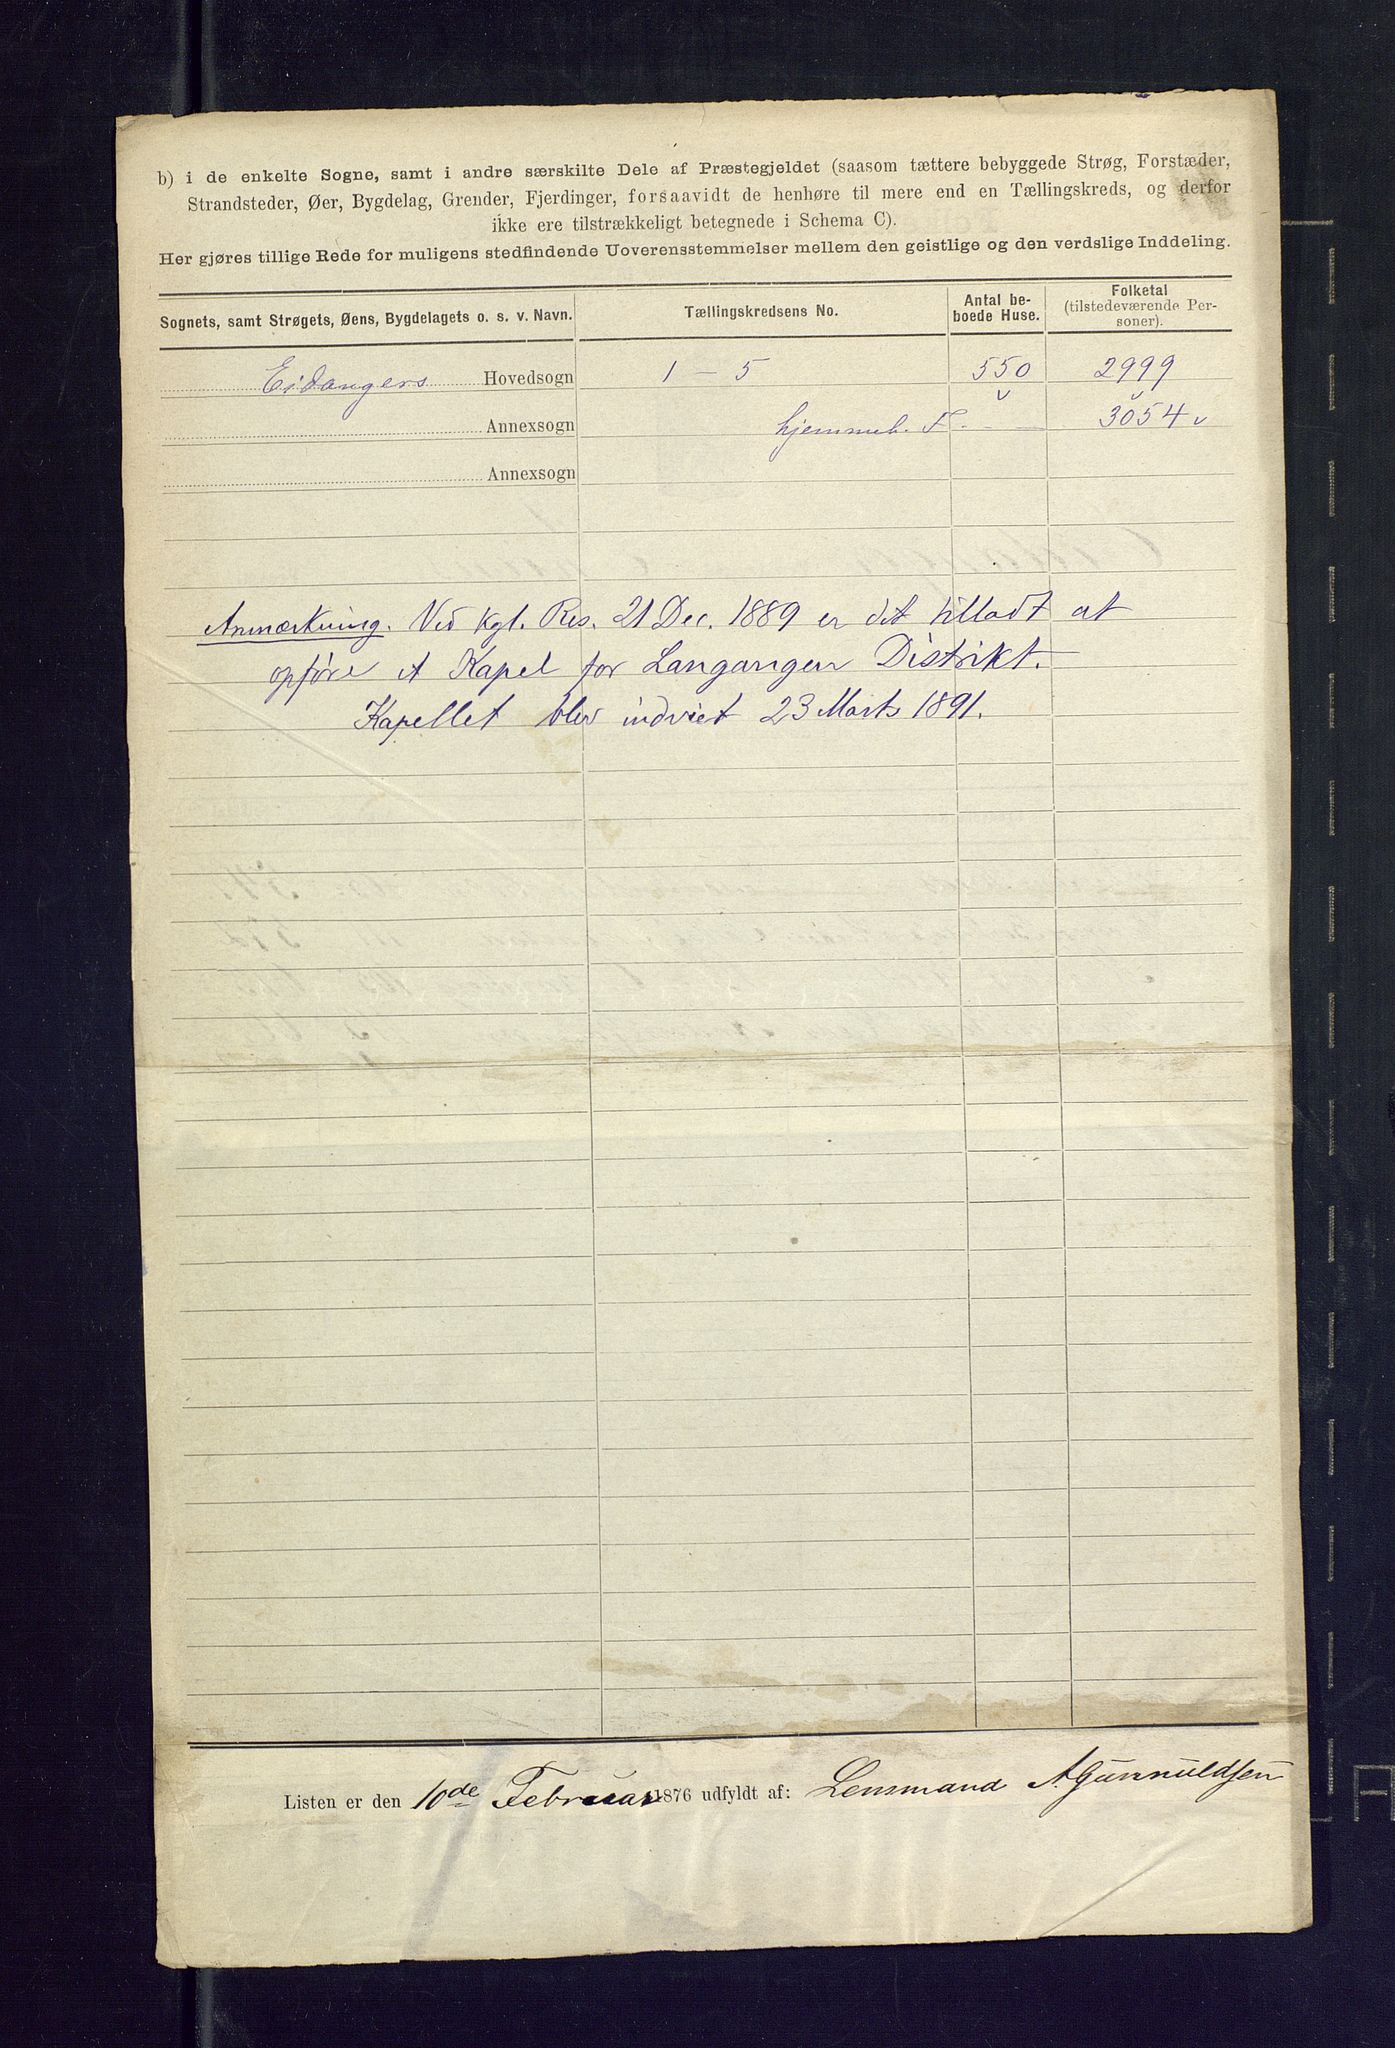 b) i de enkelte Sogne, samt i andre særskilte Dele af Præstegjeldet (saasom tættere bebyggede Strøg, Forstæder,
Strandsteder, Øer, Bygdelag, Grender, Fjerdinger, forsaavidt de henhøre til mere end en Tællingskreds, og derfor
ikke ere tilstrækkeligt betegnede i Schema C).
Her gjøres tillige Rede for muligens stedfindende Uoverensstemmelser mellem den geistlige og den verdslige Inddeling.
Sognets, samt Strøgets, Øens, Bygdelagets o. s. v. Navn. Tællingskredsens No. Antal be-
boede Huse. Folketal
(tilstedeværende Per-
soner).
Eidangers Hovedsogn 1 – 5 550 2999
Annexsogn hjemmeh. F. – – 3054 v
Annexsogn
Anmærkning. Ved kgl. Res. 21 Dec. 1889 er det tilladt at
opføre et Kapel for Langangen Distrikt.
Kapellet blev indviet 23 Marts 1891.
Listen er den 10de Februar 1876 udfyldt af: Lensmand A Gunnuldsen